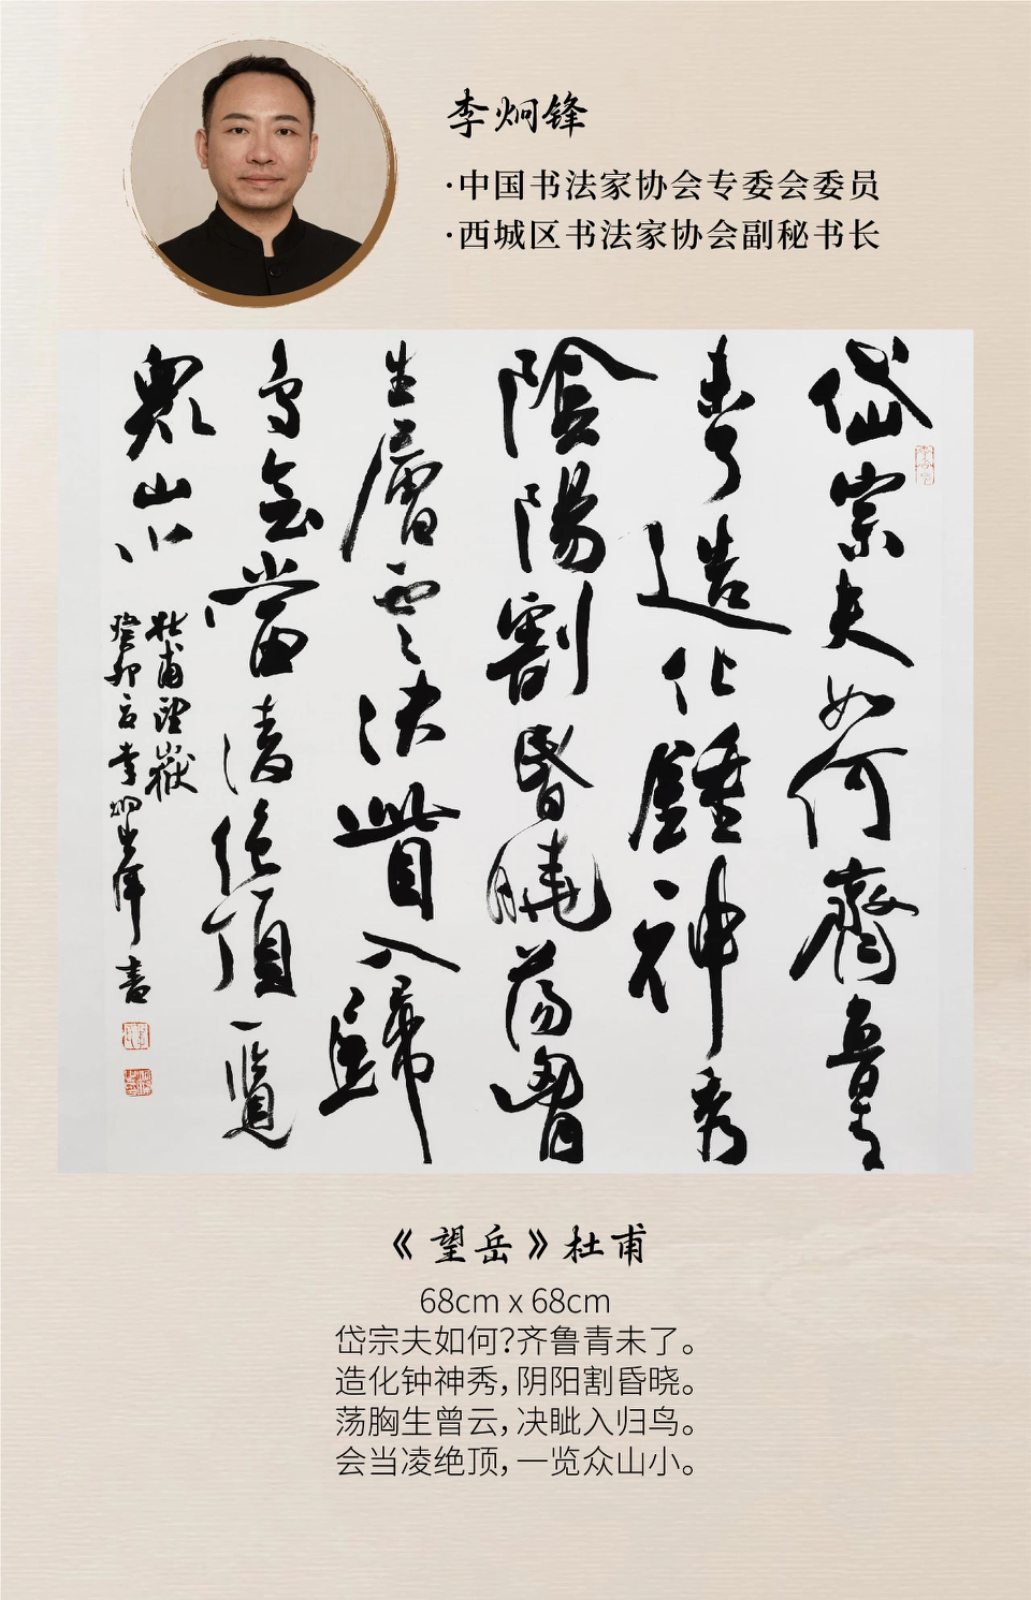 李炯锋
·中国书法家协会专委会委员
·西城区书法家协会副秘书长
岱宗夫如何齊魯青
未了造化鍾神秀
陰陽割昏曉蕩胷
生層雲決眥入歸
鳥會當凌絕頂一覽
衆山小
杜甫望嶽
癸卯李炯鋒書
《望岳》杜甫
68cm x 68cm
岱宗夫如何?齐鲁青未了。
造化钟神秀，阴阳割昏晓。
荡胸生曾云，决眦入归鸟。
会当凌绝顶，一览众山小。